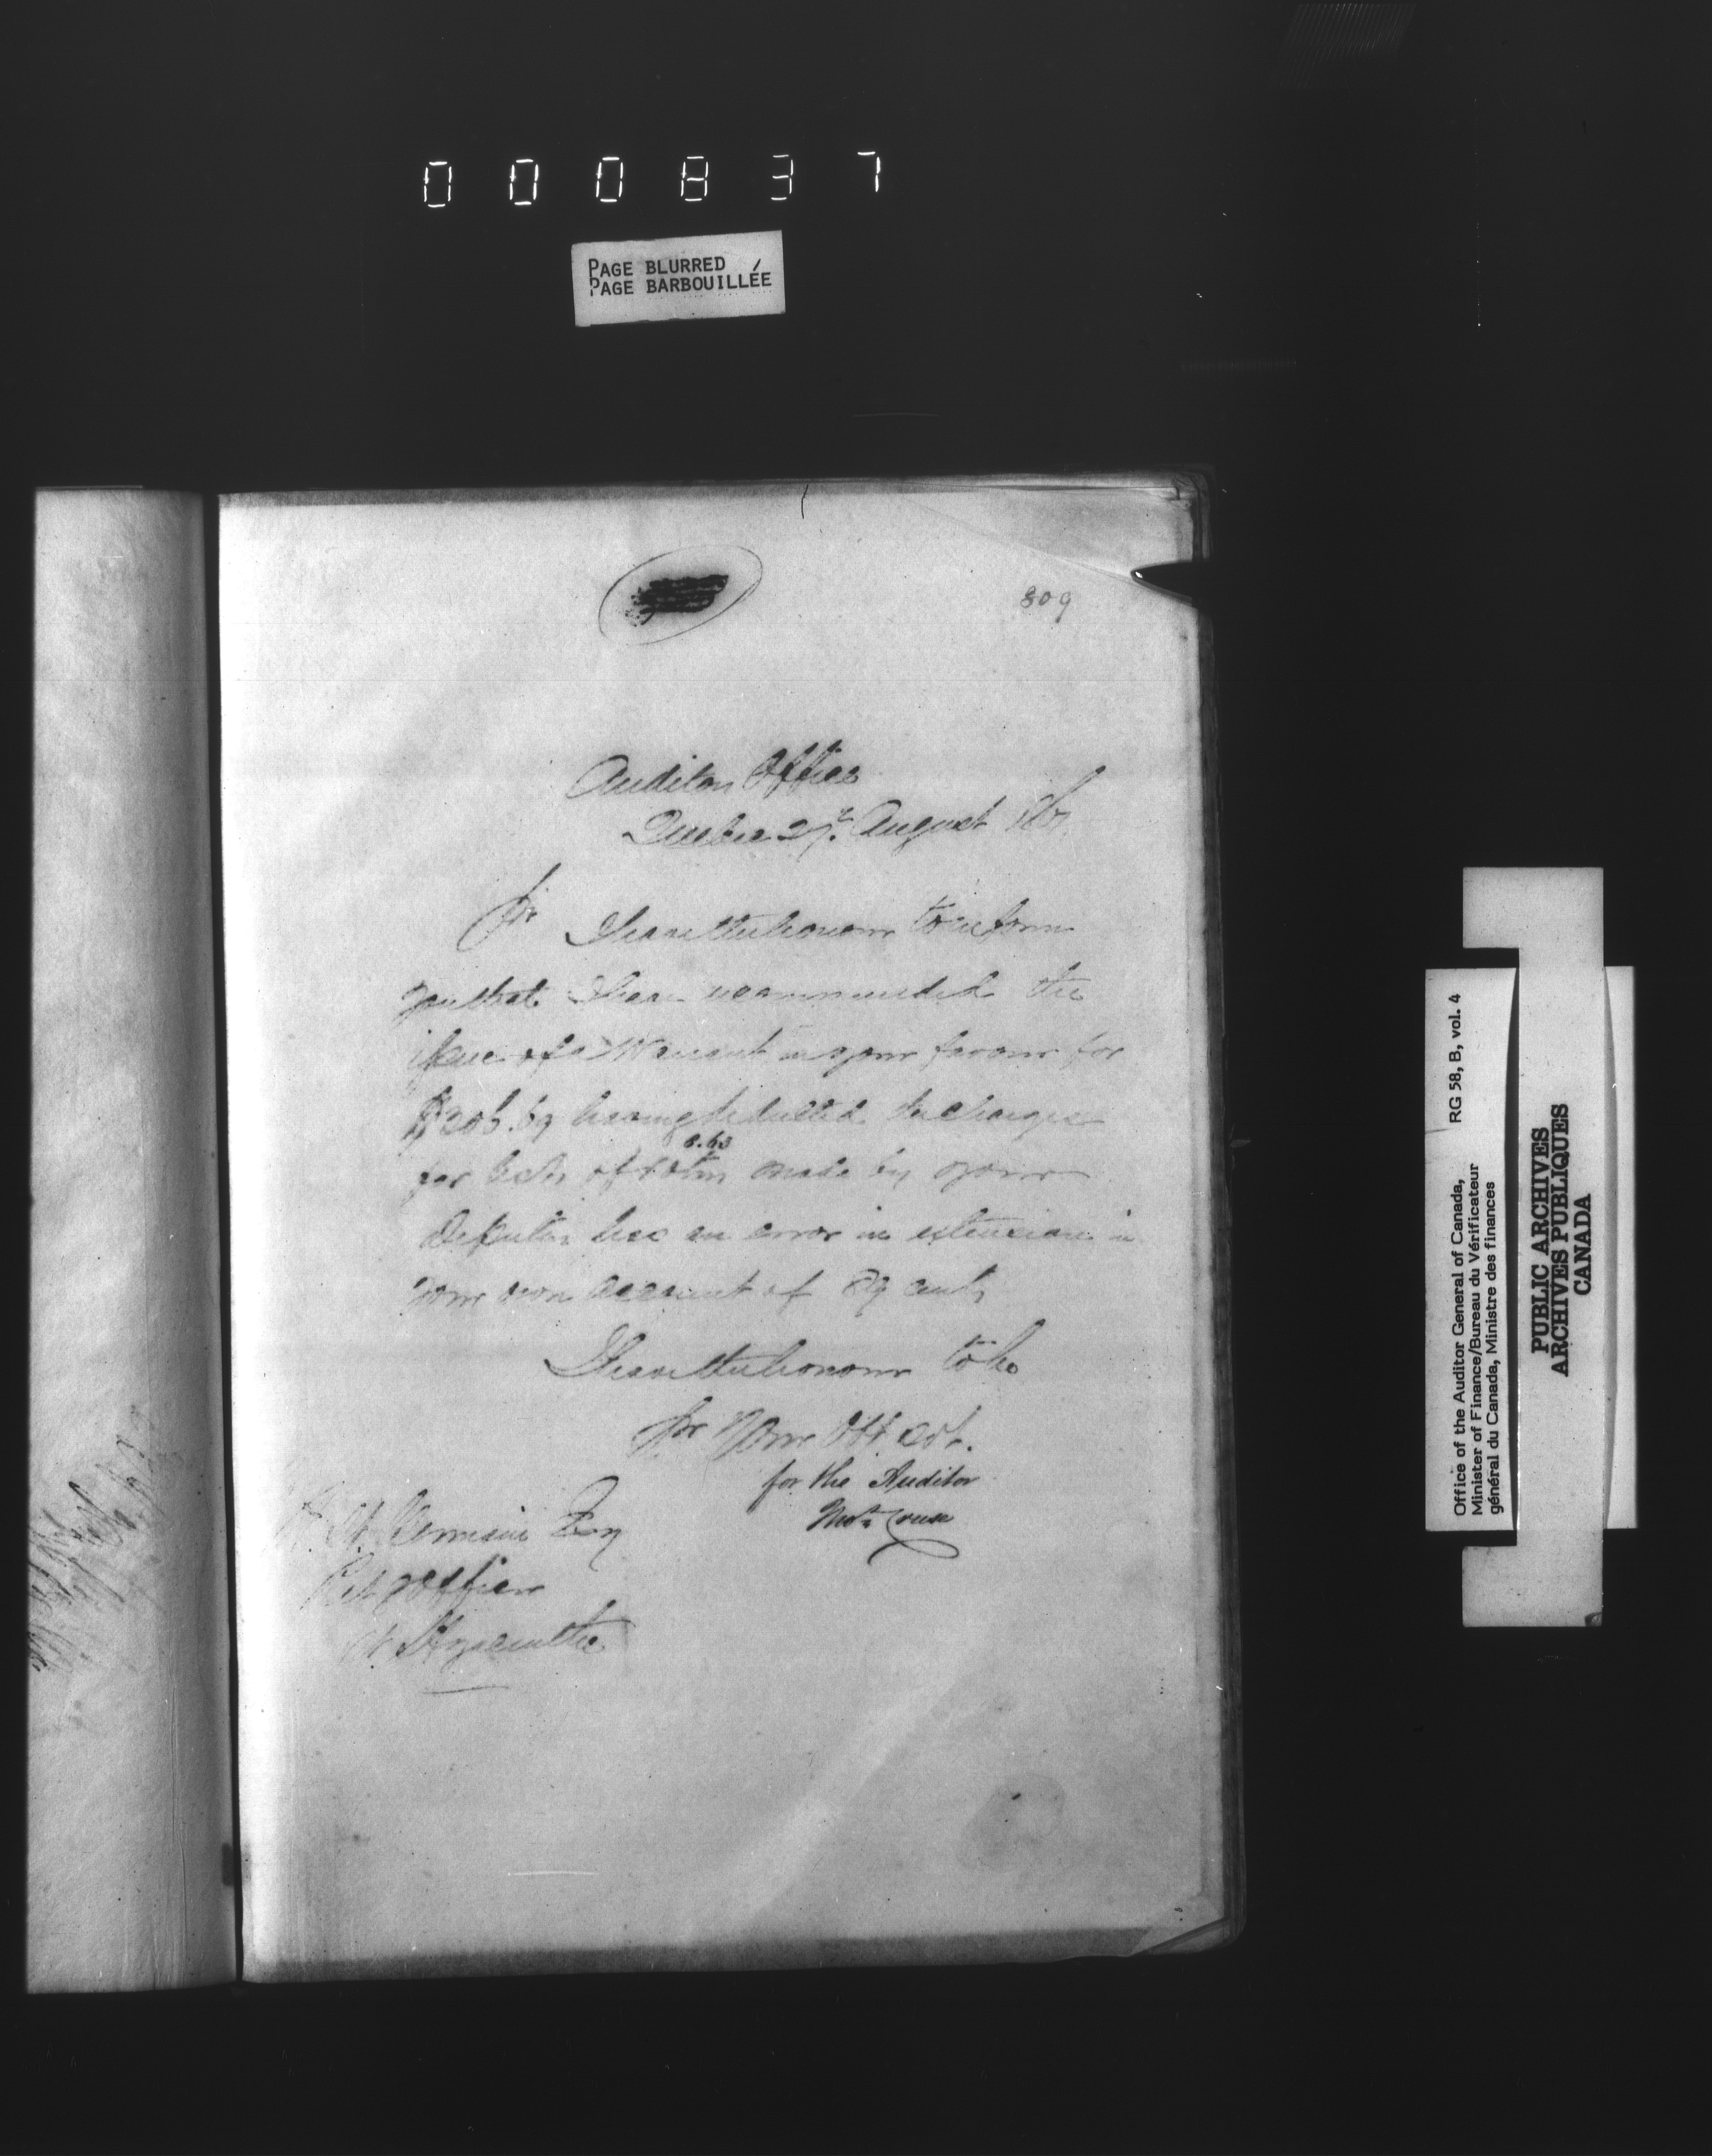 000837
PAGE BLURRED
PAGE BARBOUILLÉE
809
Audit Office
Quebec 27. August 186
Sir I have the honour to inform
you that I have recommended the
issue of a Warrant in your favour for
$206.69 having deducted the charges
8.63
for made by your
an error in extension in
your own account of 89 cents
I have the honour to be
Sir Your Obt Sert.
for the Auditor
Germain Esq
Officer
St. Hyacinthe
Office of the Auditor General of Canada, RG 58, B, vol. 4
Minister of Finance/Bureau du Vérificateur
général du Canada, Ministre des finances
PUBLIC ARCHIVES
ARCHIVES PUBLIQUES
CANADA